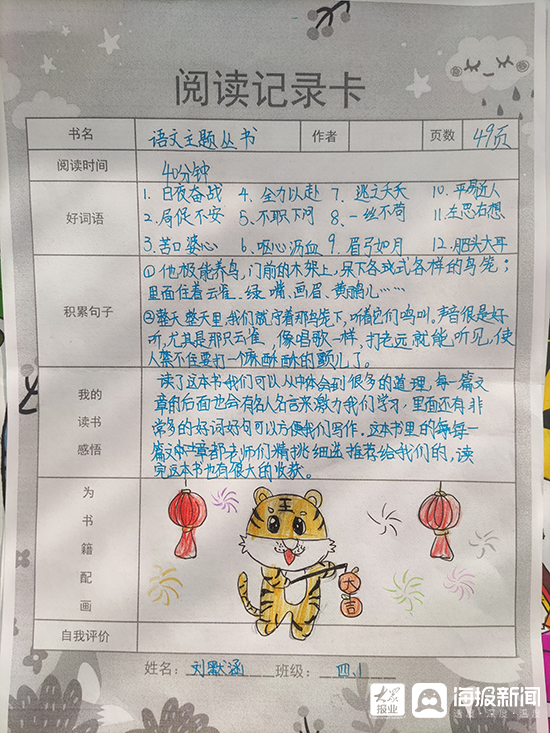 阅读记录卡
书名 语文主题丛书 作者 页数 49页
阅读时间 40分钟
好词语
1. 白夜奋战 4. 全力以赴 7. 逃之夭夭 10. 平易近人
2. 局促不安 5. 不耻下问 8. 一丝不苟 11. 左思右想
3. 苦口婆心 6. 呕心沥血 9. 眉弓如月 12. 肥头大耳
积累句子
①他极能养鸟,门前的木架上,吊下各式各样的鸟笼;
里面住着云雀、绿嘴、画眉、黄鹂儿……
②整天整天里,我们就守着那鸟笼下,听着它们鸣叫。声音很是好
听,尤其是那只云雀,像唱歌一样,打老远就能听见,使
人禁不住要打一个麻酥酥的颤儿了。
我的读书感悟
读了这本书我们可以从中体会到很多的道理,每一篇文
章的后面也会有名人名言来激力我们学习,里面还有非
常多的好词好句可以方便我们写作。这本书里的每一
篇文章都老师们精挑细选推荐给我们的,读
完这本书也有很大的收获。
为书籍配画
王
大吉
自我评价
姓名:刘默涵 班级:四.1
大众报业 海报新闻
速度·深度·温度